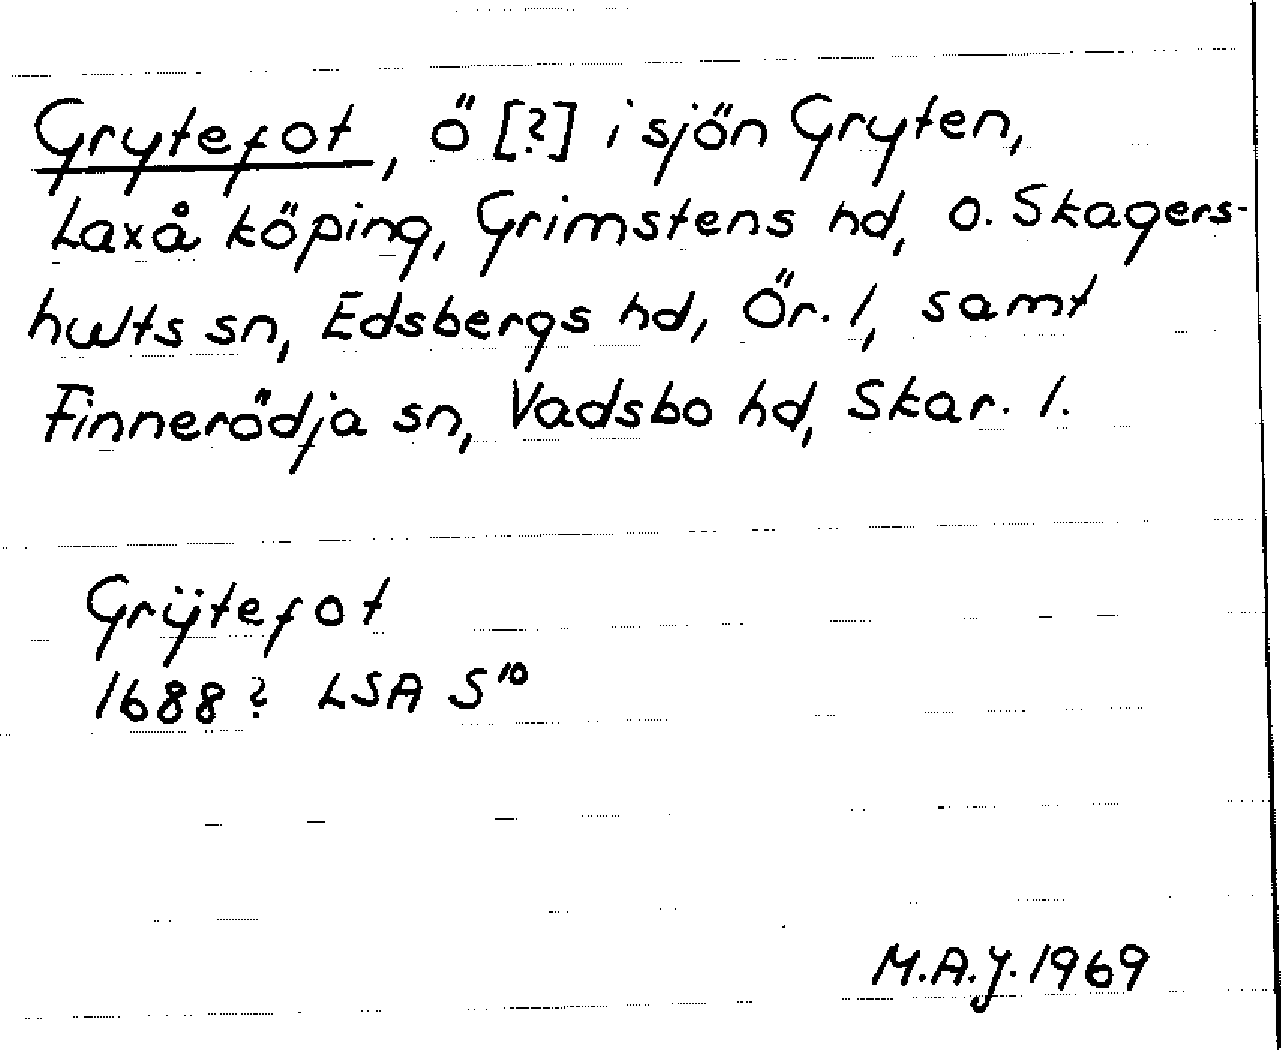 Grytefot, ö [?] i sjön Gryten,
Laxå köping, Grimstens hd, o. Skagers-
hults sn, Edsbergs hd, Ör. l, samt
Finnerödja sn, Vadsbo hd, Skar. l.
Grÿtefot
1688? LSA S 10
M.A.J. 1969